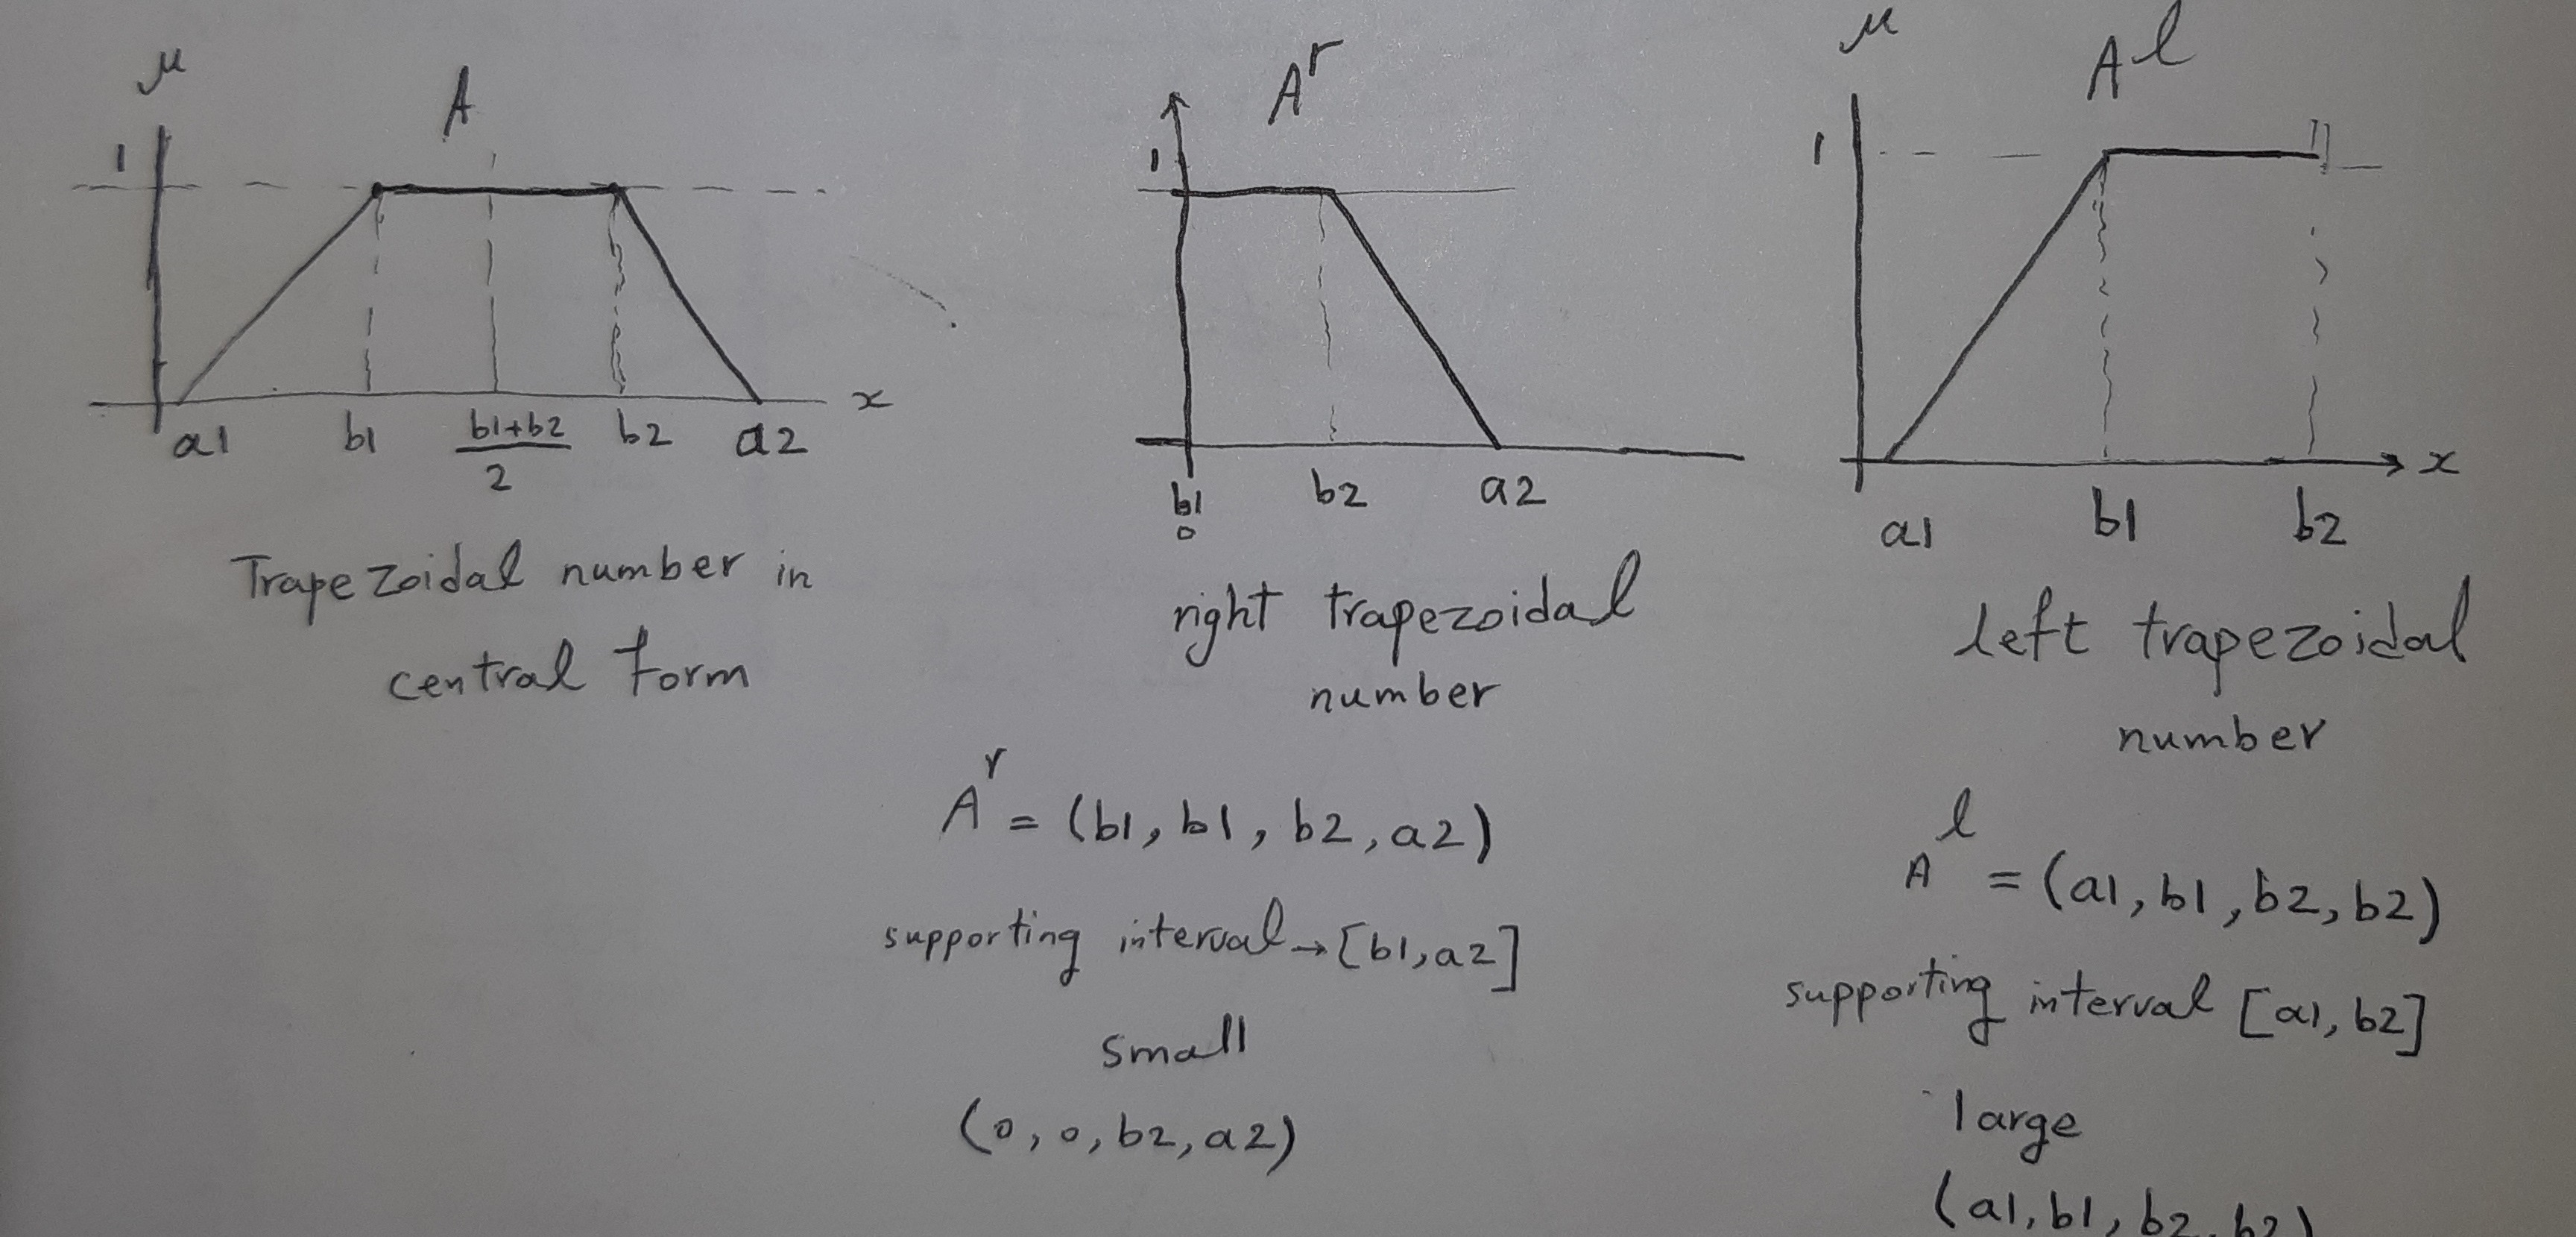 μ
A
1
a1 b1 b1+b2/2 b2 a2 x
Trapezoidal number in
central form
A^r
1
b1 b2 a2
0
right trapezoidal
number
A^r = (b1, b1, b2, a2)
supporting interval → [b1, a2]
small
(0, 0, b2, a2)
μ
A^l
1
x
a1 b1 b2
left trapezoidal
number
A^l = (a1, b1, b2, b2)
supporting interval [a1, b2]
large
(a1, b1, b2, b2)